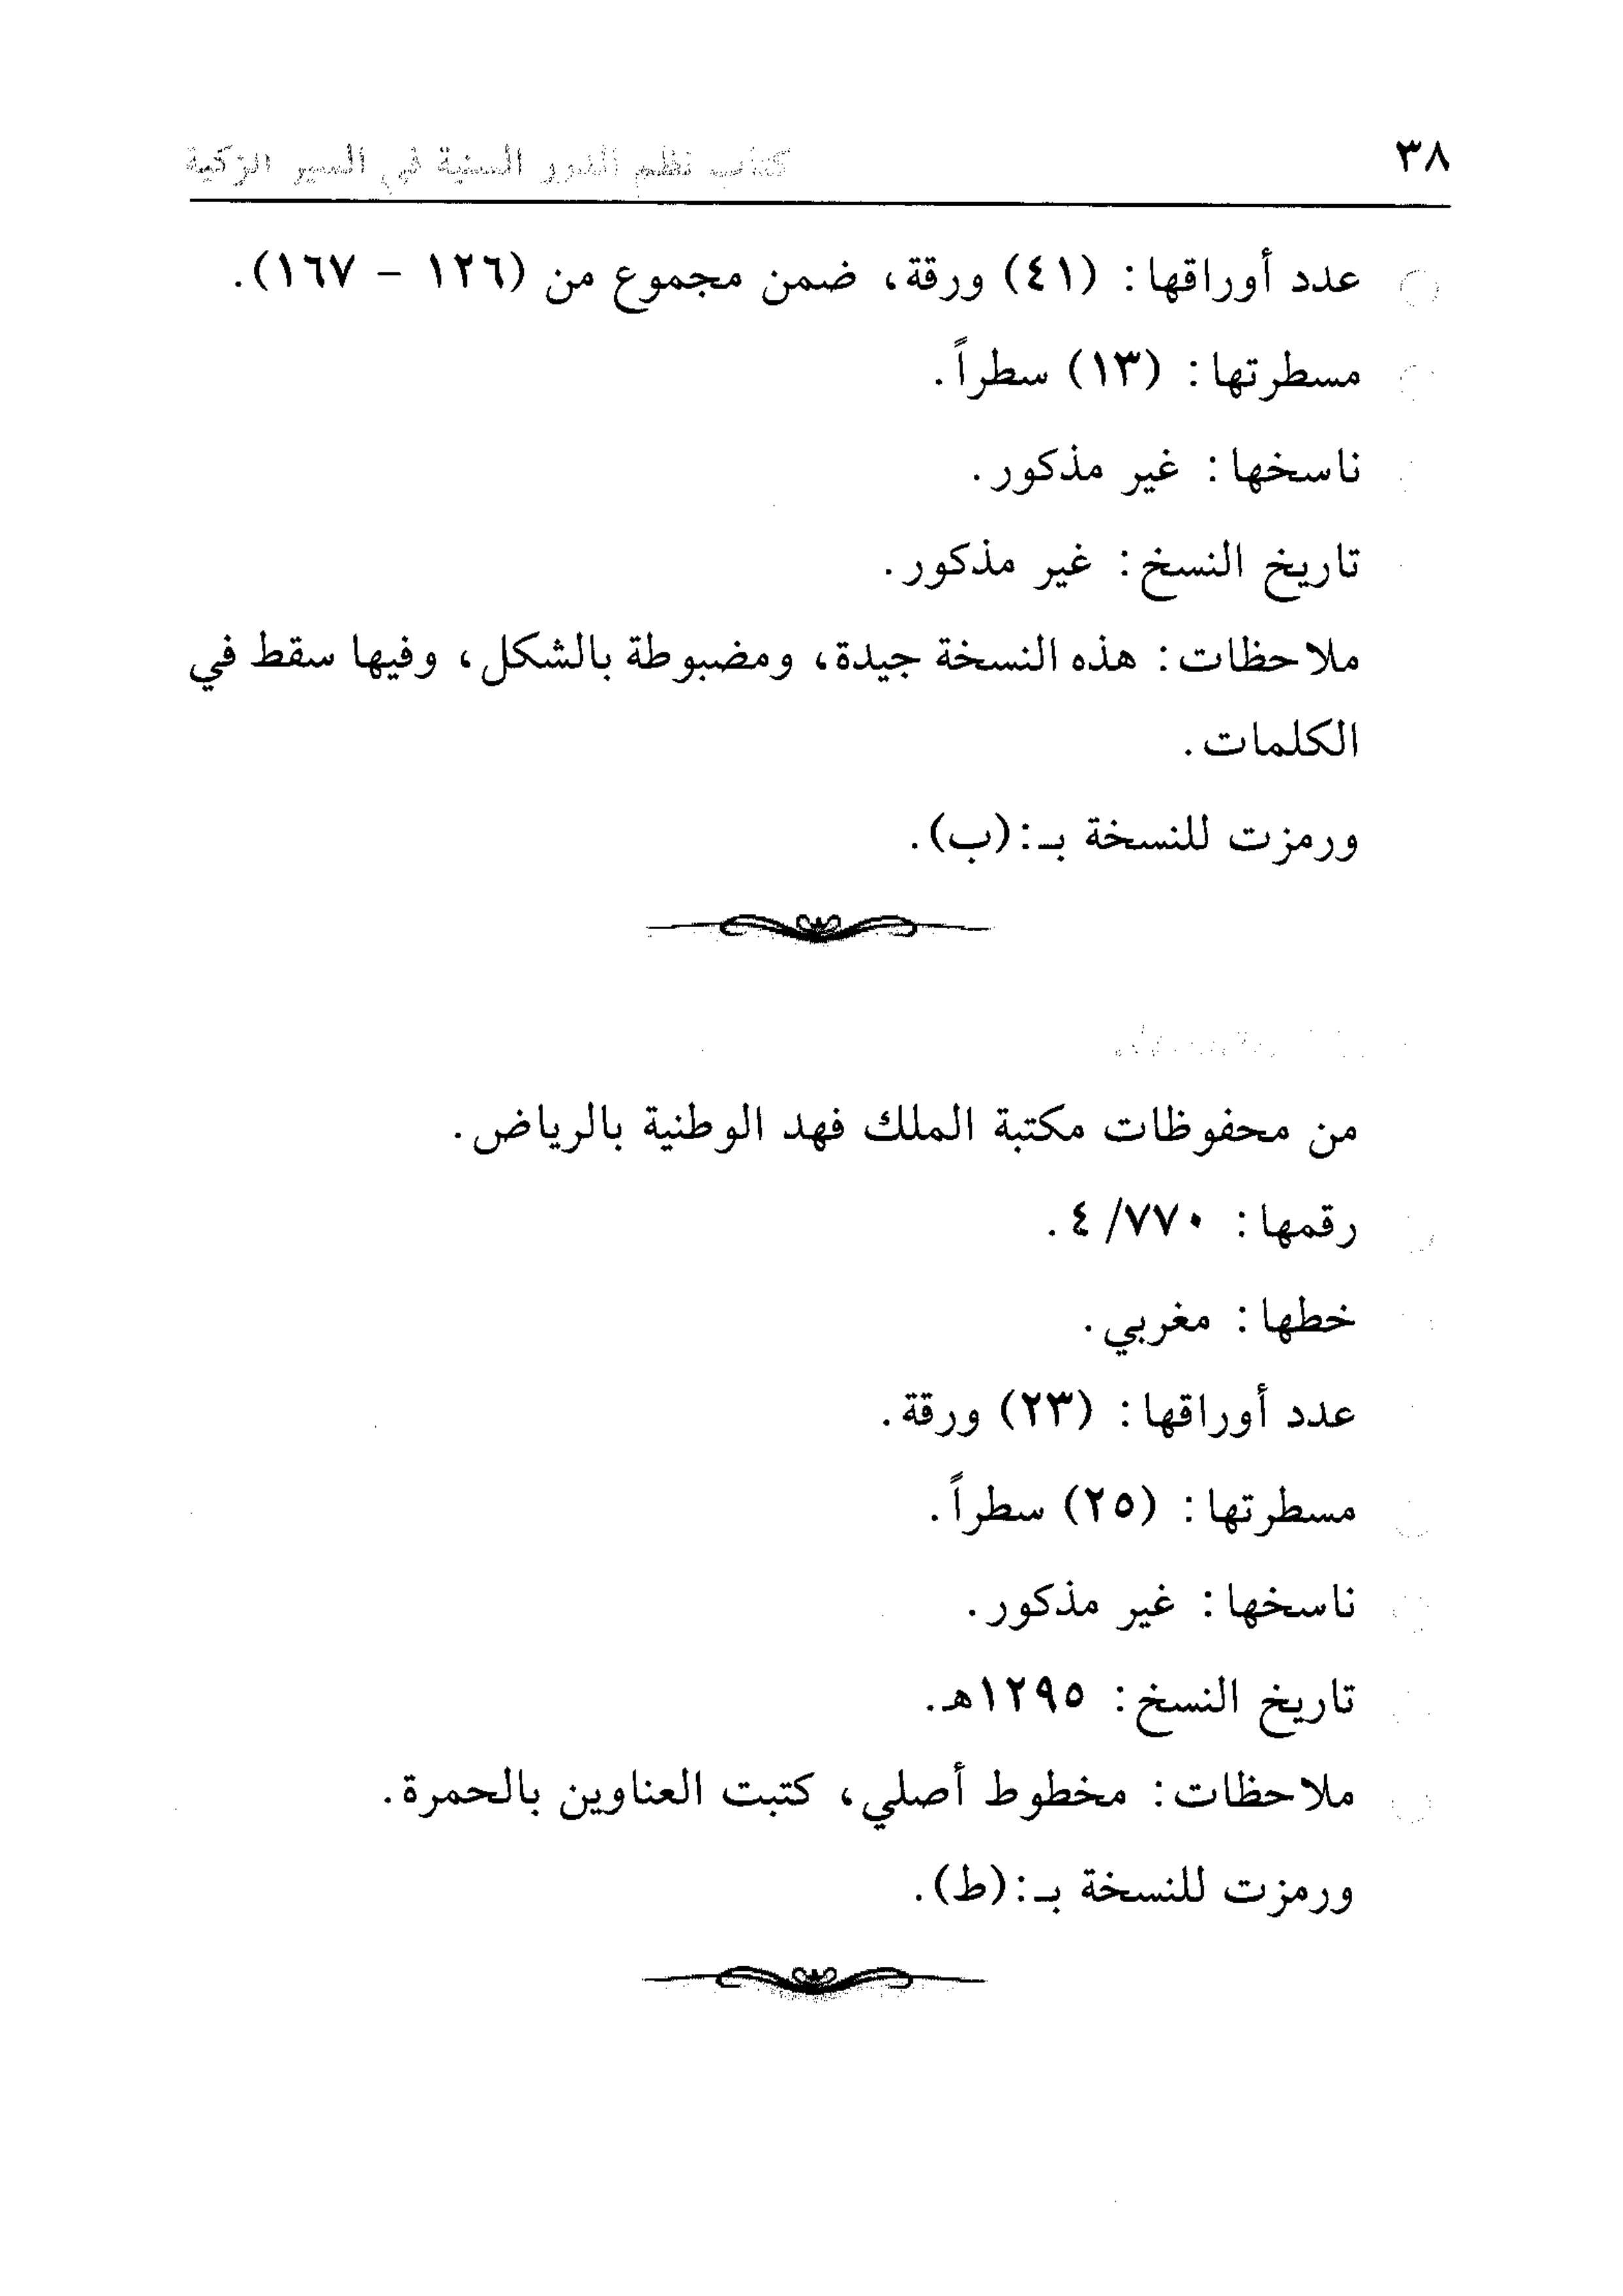 ٣٨
كتاب نظم الدرر السنية في السير الزكية
عدد أوراقها: (٤١) ورقة، ضمن مجموع من (١٢٦ - ١٦٧).
مسطرتها: (١٣) سطراً.
ناسخها: غير مذكور.
تاريخ النسخ: غير مذكور.
ملاحظات: هذه النسخة جيدة، ومضبوطة بالشكل، وفيها سقط في
الكلمات.
ورمزت للنسخة بـ:(ب).
من محفوظات مكتبة الملك فهد الوطنية بالرياض.
رقمها: ٧٧٠/ ٤.
خطها: مغربي.
عدد أوراقها: (٢٣) ورقة.
مسطرتها: (٢٥) سطراً.
ناسخها: غير مذكور.
تاريخ النسخ: ١٢٩٥هـ.
ملاحظات: مخطوط أصلي، كتبت العناوين بالحمرة.
ورمزت للنسخة بـ:(ط).